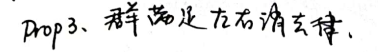 Prop 3、群满足左右消去律.